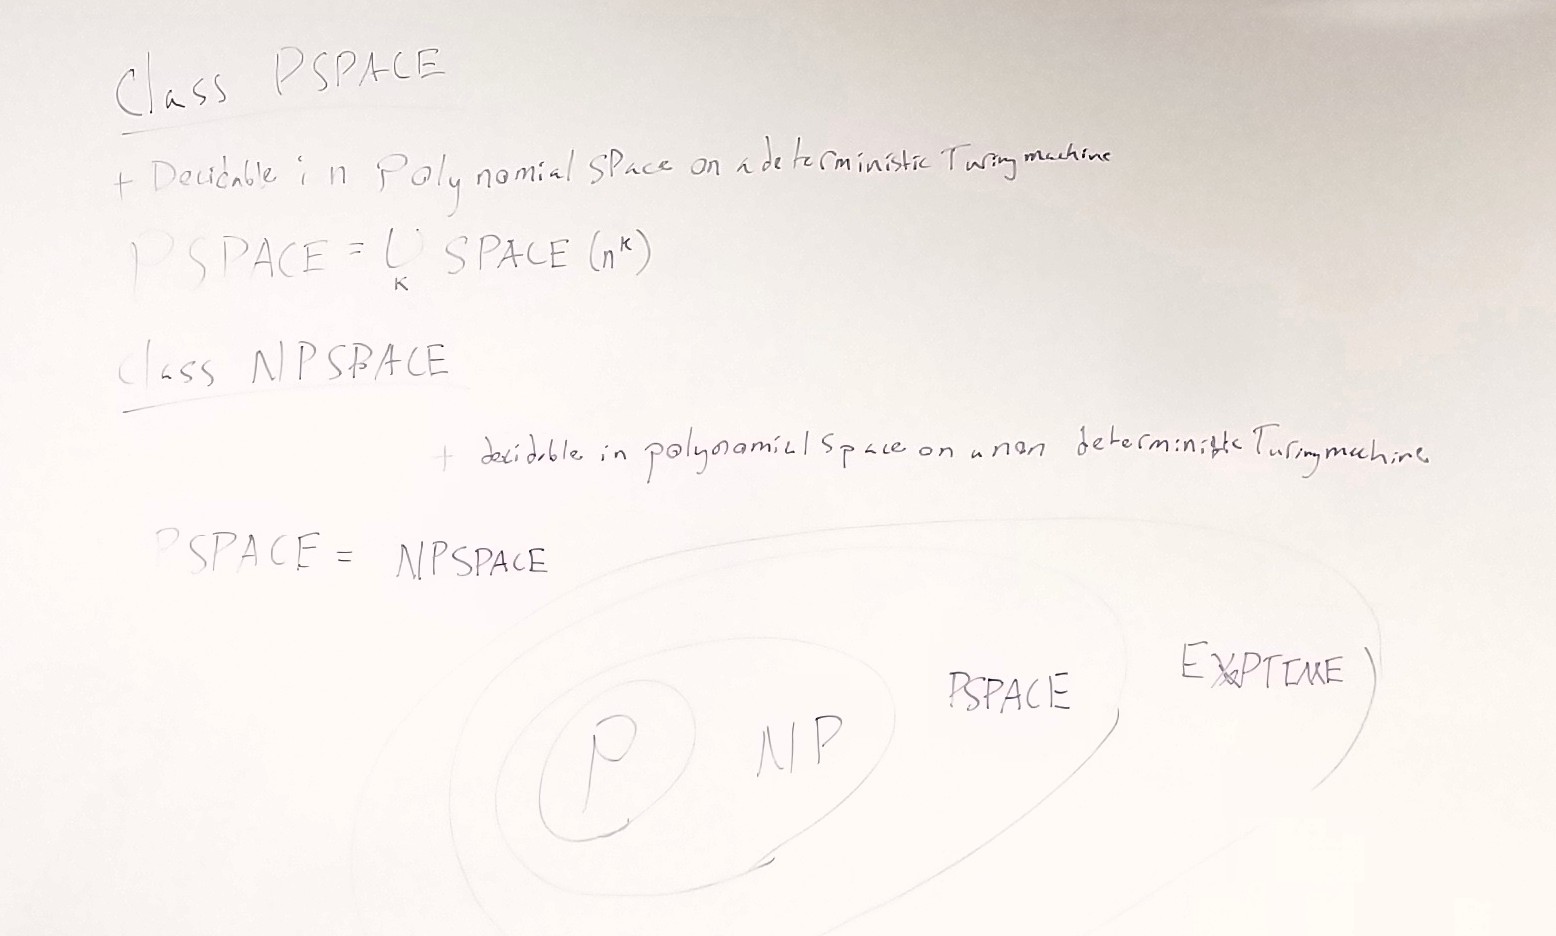 Class PSPACE
+ Decidable in Polynomial SPace on a deterministic Turing machine
PSPACE = ∪ SPACE (n^k)
K
Class NPSPACE
+ decidable in polynomial Space on a non deterministic Turing machine
PSPACE = NPSPACE
P NP PSPACE EXPTIME